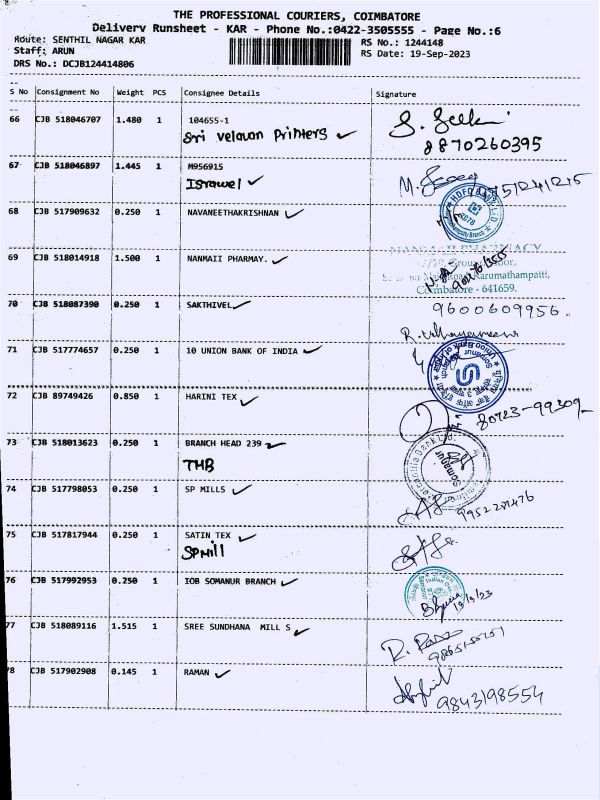 THE PROFESSIONAL COURIERS, COIMBATORE
Delivery Runsheet - KAR - Phone No.:0422-3505555 - Page No.:6
Route: SENTHIL NAGAR KAR
RS No.: 1244148
Staff: ARUN
RS Date: 19-Sep-2023
DRS No.: DCJB124414806
S No Consignment No Weight PCS Consignee Details Signature
66 CJB 518046707 1.480 1 104655-1
Sri Velavan Printers
8870260395
67 CJB 518046897 1.445 1 M956915
HDFC BANK LTD
68 CJB 517909632 0.250 1 NAVANEETHAKRISHNAN
69 CJB 518014918 1.500 1 NANMAII PHARMAY.
PHARMACY
Karumathampatti,
Coimbatore - 641659.
70 CJB 518087390 0.250 1 SAKTHIVEL
9600609956.
71 CJB 517774657 0.250 1 10 UNION BANK OF INDIA
Union Bank of India
72 CJB 89749426 0.850 1 HARINI TEX
80723-99309
73 CJB 518013623 0.250 1 BRANCH HEAD 239
TMB
Somanur
74 CJB 517798053 0.250 1 SP MILLS
75 CJB 517817944 0.250 1 SATIN TEX
SPMill
76 CJB 517992953 0.250 1 IOB SOMANUR BRANCH
77 CJB 518089116 1.515 1 SREE SUNDHANA MILL S
78 CJB 517902908 0.145 1 RAMAN
9843198554